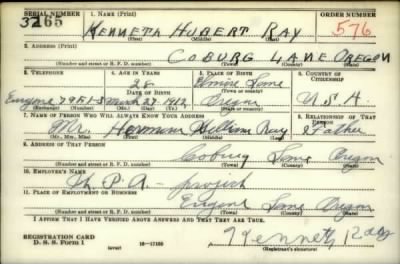 SERIAL NUMBER 1. NAME (Print) ORDER NUMBER
3265 KENNETH HUBERT RAY 576
(First) (Middle) (Last)
2. ADDRESS (Print)
COBURG LANE OREGON
(Number and street or R. F. D. number) (Town) (County) (State)
3. TELEPHONE 4. AGE IN YEARS 5. PLACE OF BIRTH 6. COUNTRY OF CITIZENSHIP
28 Lane
DATE OF BIRTH (Town or county)
Eugene 79F1-5 March 27-1912 Oregon U.S.A
(Exchange) (Number) (Mo.) (Day) (Yr.) (State or country)
7. NAME OF PERSON WHO WILL ALWAYS KNOW YOUR ADDRESS 8. RELATIONSHIP OF THAT PERSON
Mr. Herman William Ray Father
(Mr., Mrs., Miss) (First) (Middle) (Last)
9. ADDRESS OF THAT PERSON
Coburg Lane Oregon
(Number and street or R. F. D. number) (Town) (County) (State)
10. EMPLOYER'S NAME
W. P. A - project
11. PLACE OF EMPLOYMENT OR BUSINESS
Eugene Lane Oregon
(Number and street or R. F. D. number) (Town) (County) (State)
I AFFIRM THAT I HAVE VERIFIED ABOVE ANSWERS AND THAT THEY ARE TRUE.
REGISTRATION CARD
D. S. S. Form 1 (over) 16-17105 Kenneth Ray
(Registrant's signature)